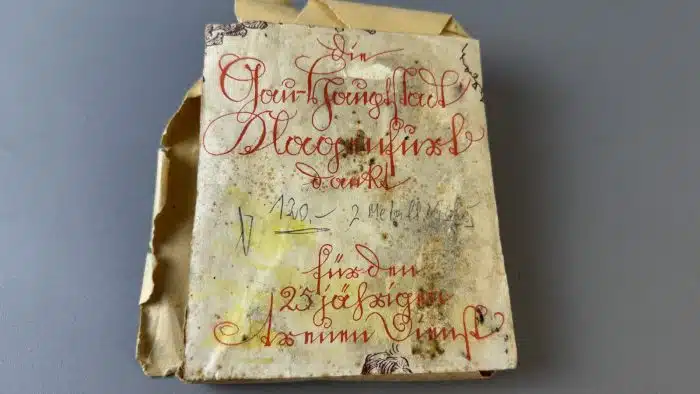 die
Gau-Hauptstadt
Klagenfurt
dankt
2 Metall
für den
25 jährigen
Treuen Dienst